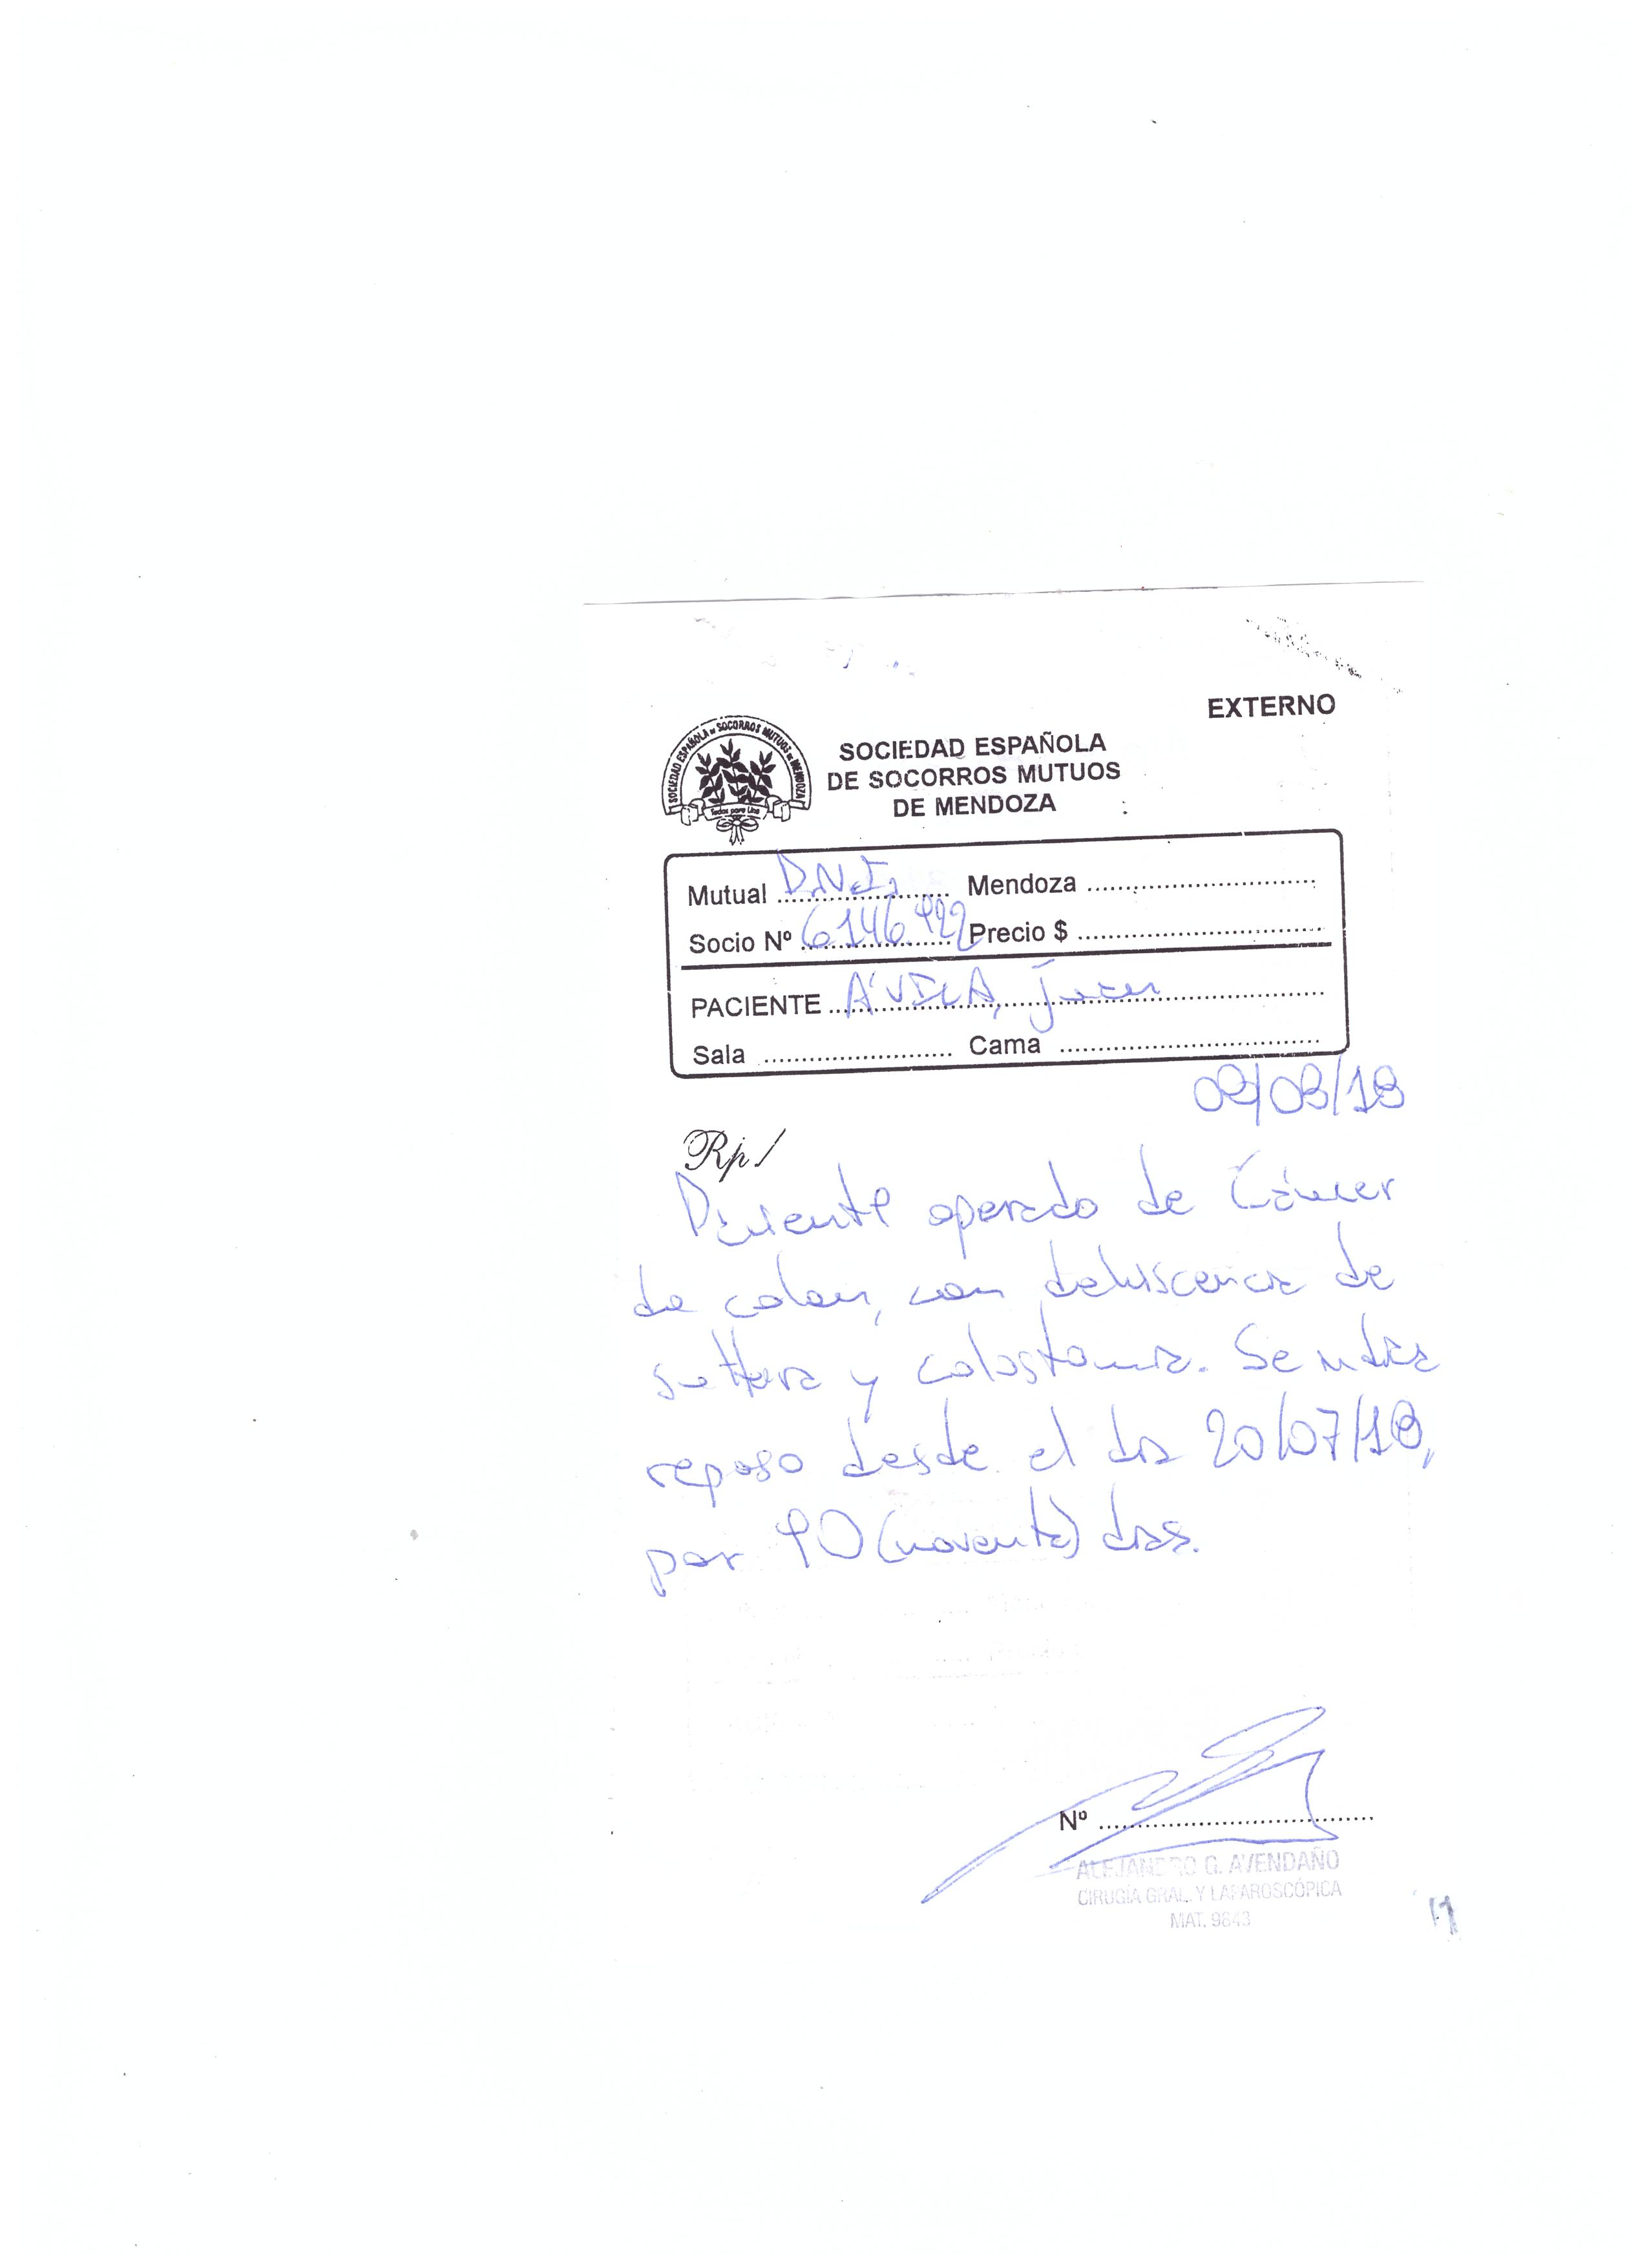 EXTERNO
SOCIEDAD ESPAÑOLA DE SOCORROS MUTUOS DE MENDOZA
Todos para Uno
SOCIEDAD ESPAÑOLA
DE SOCORROS MUTUOS
DE MENDOZA
Mutual D.N.I. Mendoza
Socio Nº 6146422 Precio $
PACIENTE ÁVILA, Juan
Sala Cama
08/08/18
Rp/
Paciente operado de Cáncer
de colon, con dehiscencia de
sutura y colostomia. Se indica
reposo desde el dia 20/07/18,
por 90 (noventa) dias.
Nº
ALEJANDRO G. AVENDAÑO
CIRUGÍA GRAL. Y LAPAROSCÓPICA
MAT. 9843